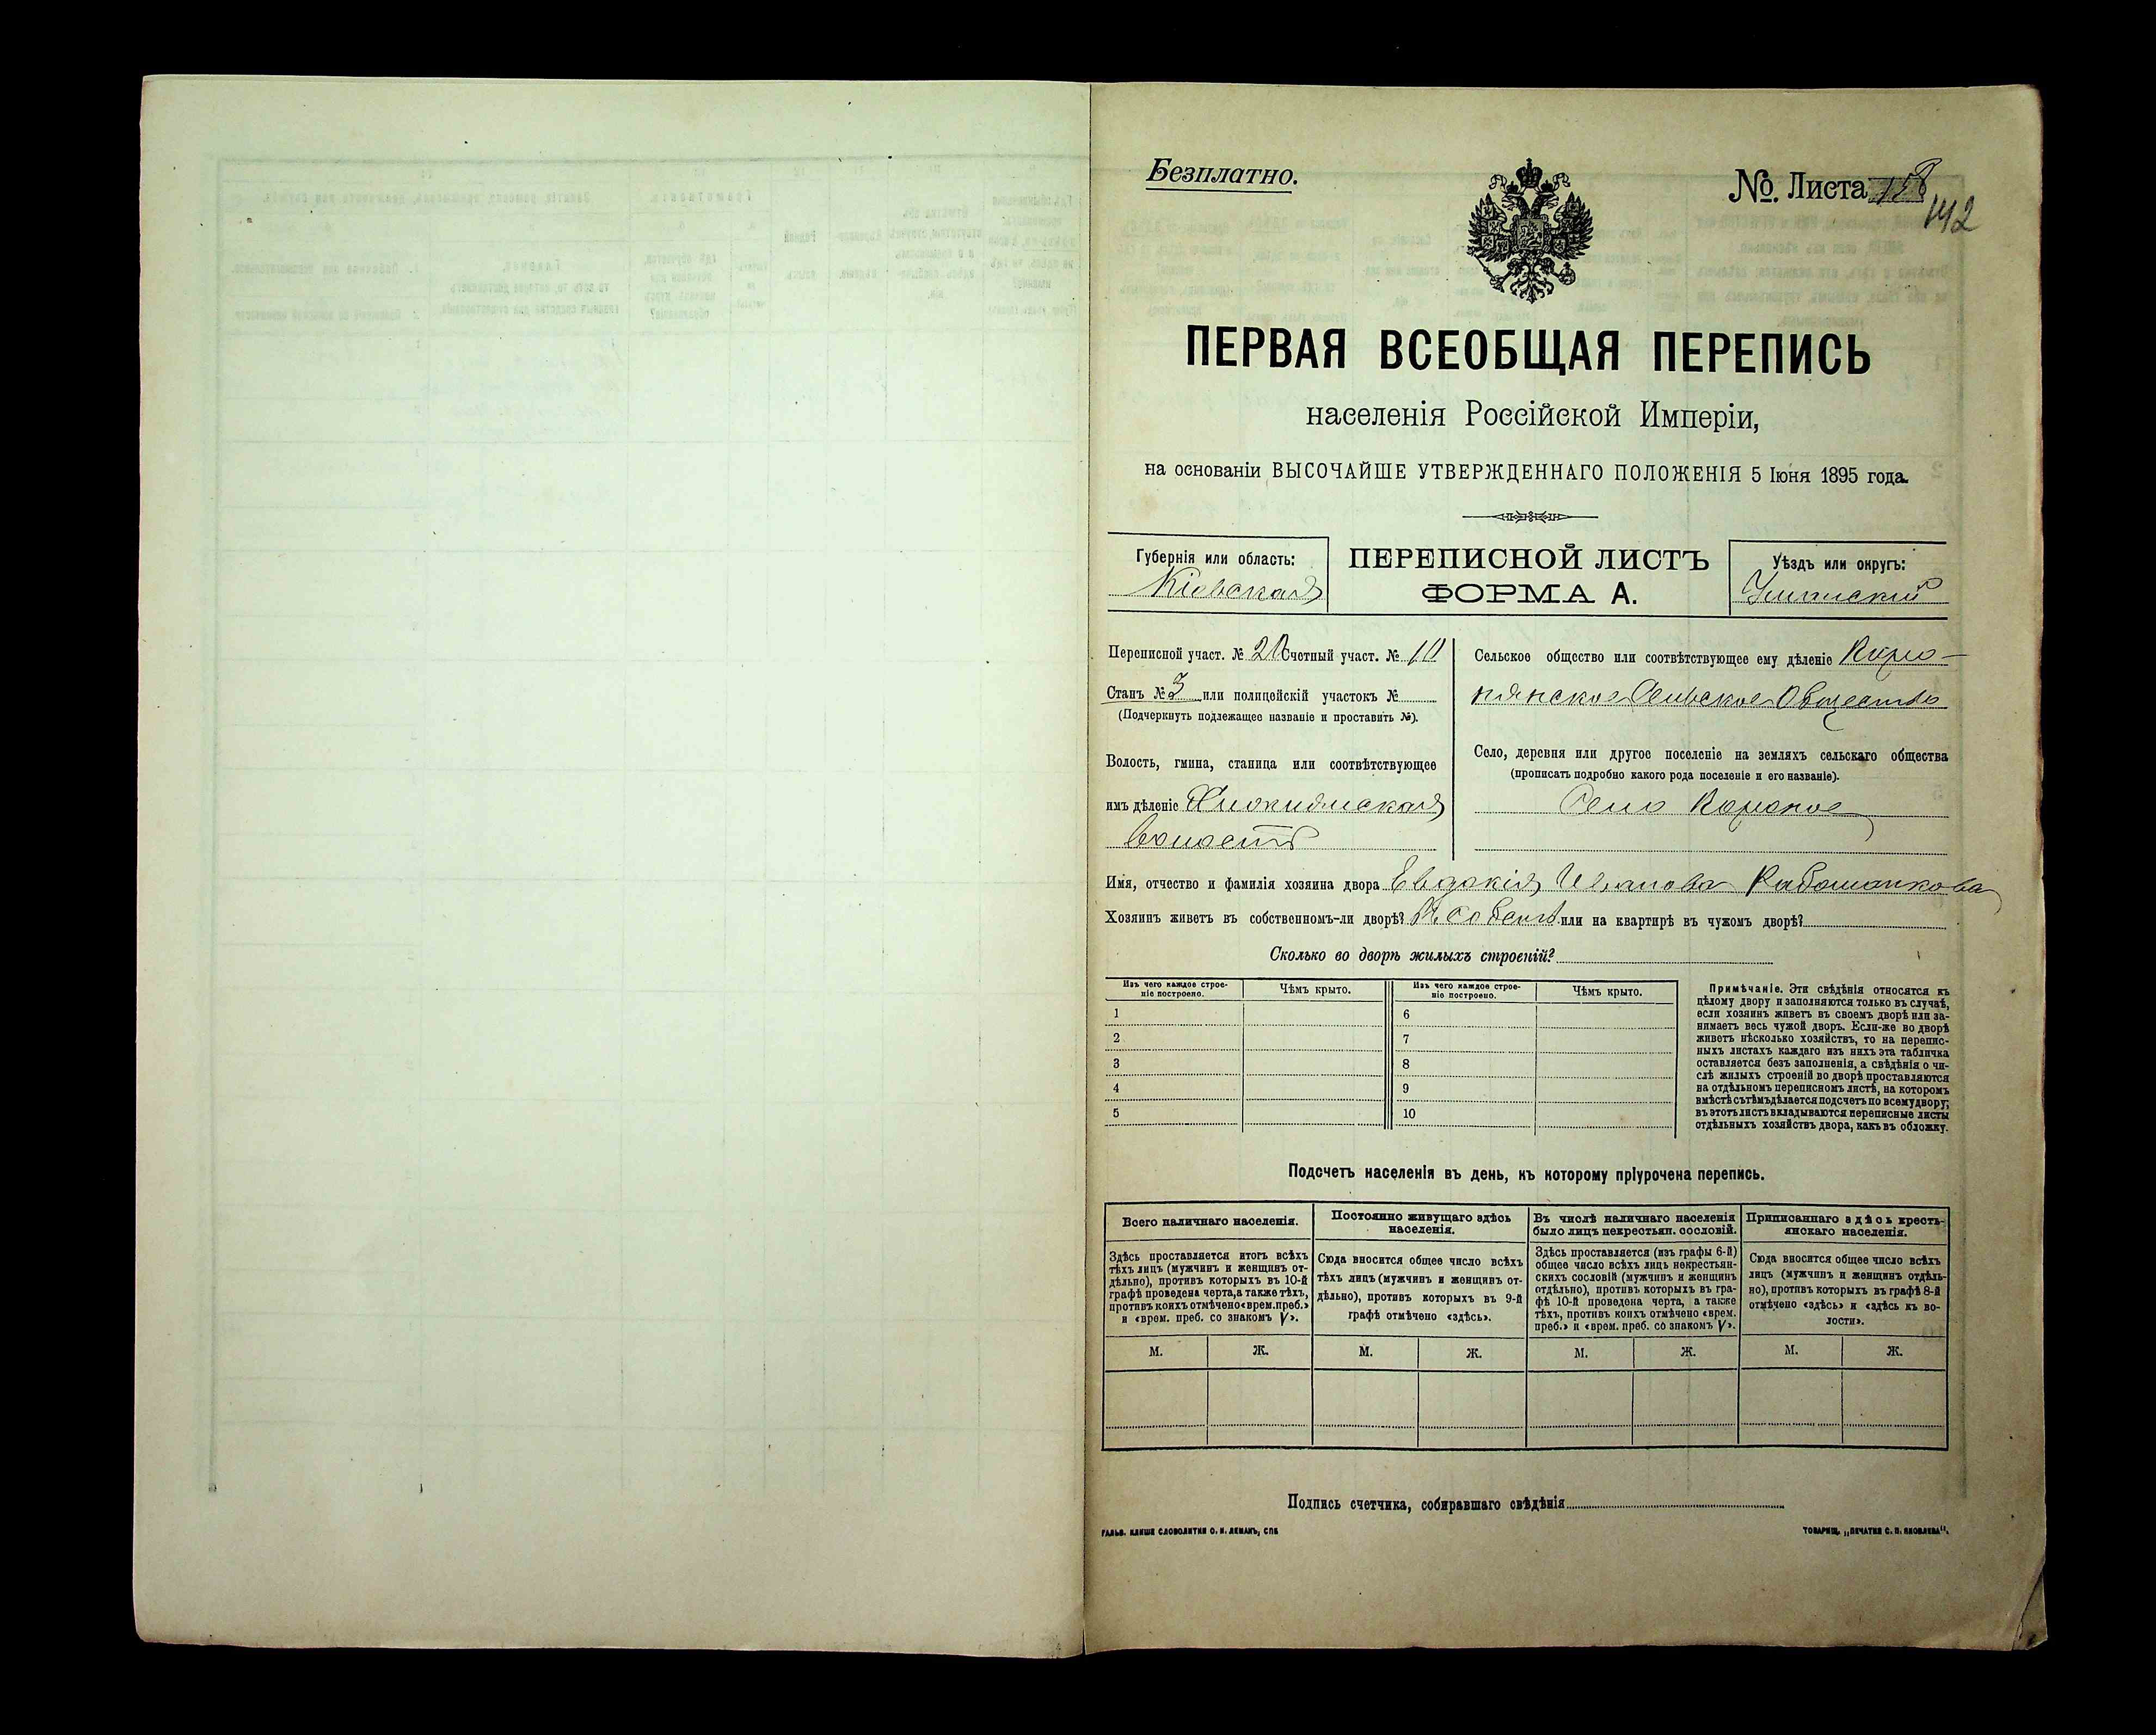 Безплатно.
№. Листа 158
142
ПЕРВАЯ ВСЕОБЩАЯ ПЕРЕПИСЬ
населенія Россійской Имперіи,
на основаніи ВЫСОЧАЙШЕ УТВЕРЖДЕННАГО ПОЛОЖЕНІЯ 5 Іюня 1895 года.
Губернія или область:
Кіевская
ПЕРЕПИСНОЙ ЛИСТЪ
ФОРМА А.
Уѣздъ или округъ:
Уманскій
Переписной участ. № 20 Счетный участ. № 10
Станъ № 3 или полицейскій участокъ №
(Подчеркнуть подлежащее названіе и проставить №).
Волость, гмина, станица или соотвѣтствующее
имъ дѣленіе
волость
Сельское общество или соотвѣтствующее ему дѣленіе
Сельское Общество
Село, деревня или другое поселеніе на земляхъ сельскаго общества
(прописать подробно какого рода поселеніе и его названіе).
Село
Имя, отчество и фамилія хозяина двора Евдокія Иванова
Хозяинъ живетъ въ собственномъ-ли дворѣ? или на квартирѣ въ чужомъ дворѣ?
Сколько во дворѣ жилыхъ строеній?
Изъ чего каждое строе-
ніе построено.
Чѣмъ крыто.
Изъ чего каждое строе-
ніе построено.
Чѣмъ крыто.
1
2
3
4
5
6
7
8
9
10
Примѣчаніе. Эти свѣдѣнія относятся къ
цѣлому двору и заполняются только въ случаѣ,
если хозяинъ живетъ въ своемъ дворѣ или за-
нимаетъ весь чужой дворъ. Если-же во дворѣ
живетъ нѣсколько хозяйствъ, то на перепис-
ныхъ листахъ каждаго изъ нихъ эта табличка
оставляется безъ заполненія, а свѣдѣнія о чи-
слѣ жилыхъ строеній во дворѣ проставляются
на отдѣльномъ переписномъ листѣ, на которомъ
вмѣстѣ съ тѣмъ дѣлается подсчетъ по всему двору;
въ этотъ листъ вкладываются переписные листы
отдѣльныхъ хозяйствъ двора, какъ въ обложку.
Подсчетъ населенія въ день, къ которому пріурочена перепись.
Всего наличнаго населенія.
Здѣсь проставляется итогъ всѣхъ
тѣхъ лицъ (мужчинъ и женщинъ от-
дѣльно), противъ которыхъ въ 10-й
графѣ проведена черта, а также тѣхъ,
противъ коихъ отмѣчено «врем. преб.»
и «врем. преб. со знакомъ V».
М.
Ж.
Постоянно живущаго здѣсь
населенія.
Сюда вносится общее число всѣхъ
тѣхъ лицъ (мужчинъ и женщинъ от-
дѣльно), противъ которыхъ въ 9-й
графѣ отмѣчено «здѣсь».
М.
Ж.
Въ числѣ наличнаго населенія
было лицъ некрестьян. сословій.
Здѣсь проставляется (изъ графы 6-й)
общее число всѣхъ лицъ некрестьян-
скихъ сословій (мужчинъ и женщинъ
отдѣльно), противъ которыхъ въ гра-
фѣ 10-й проведена черта, а также
тѣхъ, противъ коихъ отмѣчено «врем.
преб.» и «врем. преб. со знакомъ V».
М.
Ж.
Приписаннаго здѣсь кресть-
янскаго населенія.
Сюда вносится общее число всѣхъ
лицъ (мужчинъ и женщинъ отдѣль-
но), противъ которыхъ въ графѣ 8-й
отмѣчено «здѣсь» и «здѣсь къ во-
лости».
М.
Ж.
Подпись счетчика, собиравшаго свѣдѣнія
ГАЛЬВ. КЛИШЕ СЛОВОЛИТНИ О. И. ЛЕМАНЪ, СПБ
ТОВАРИЩ. „ПЕЧАТНЯ С. П. ЯКОВЛЕВА".